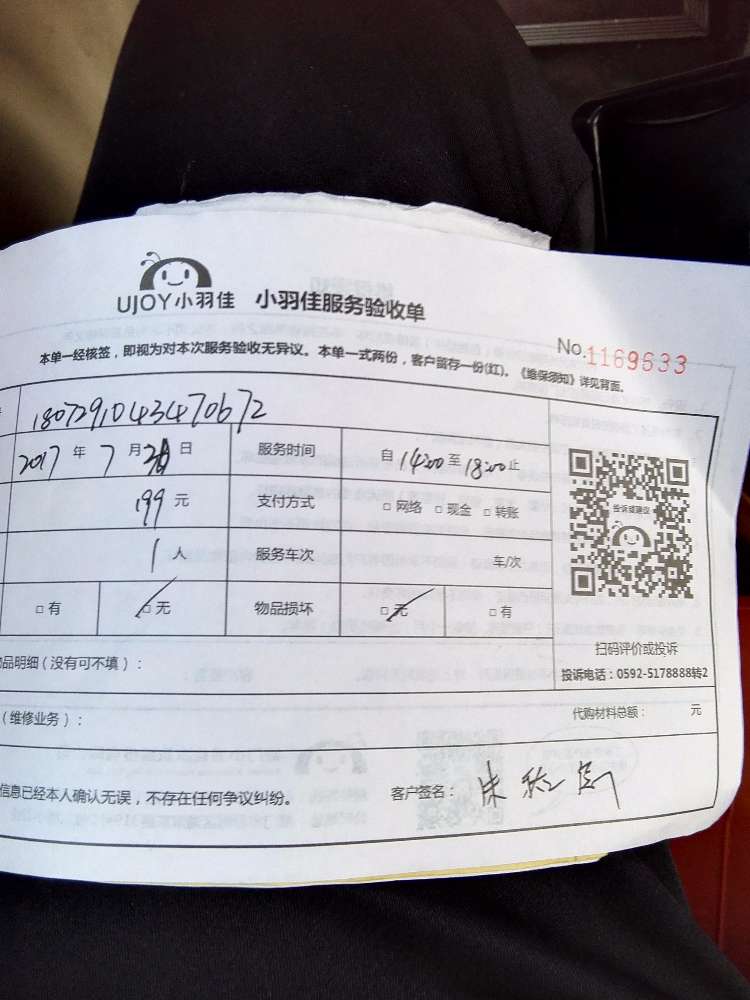 UJOY小羽佳 小羽佳服务验收单
No.1169633
本单一经核签，即视为对本次服务验收无异议。本单一式两份，客户留存一份(红)。《维保须知》详见背面。
1807291043470672
2017 年 7 月 日 服务时间 自 14:00 至 18:00 止
199 元 支付方式 □ 网络 □ 现金 □ 转账
投诉或建议
1 人 服务车次 车/次
□ 有 □ 无 物品损坏 □ 无 □ 有
扫码评价或投诉
投诉电话：0592-5178888转2
品明细（没有可不填）：
（维修业务）： 代购材料总额： 元
信息已经本人确认无误，不存在任何争议纠纷。 客户签名：朱